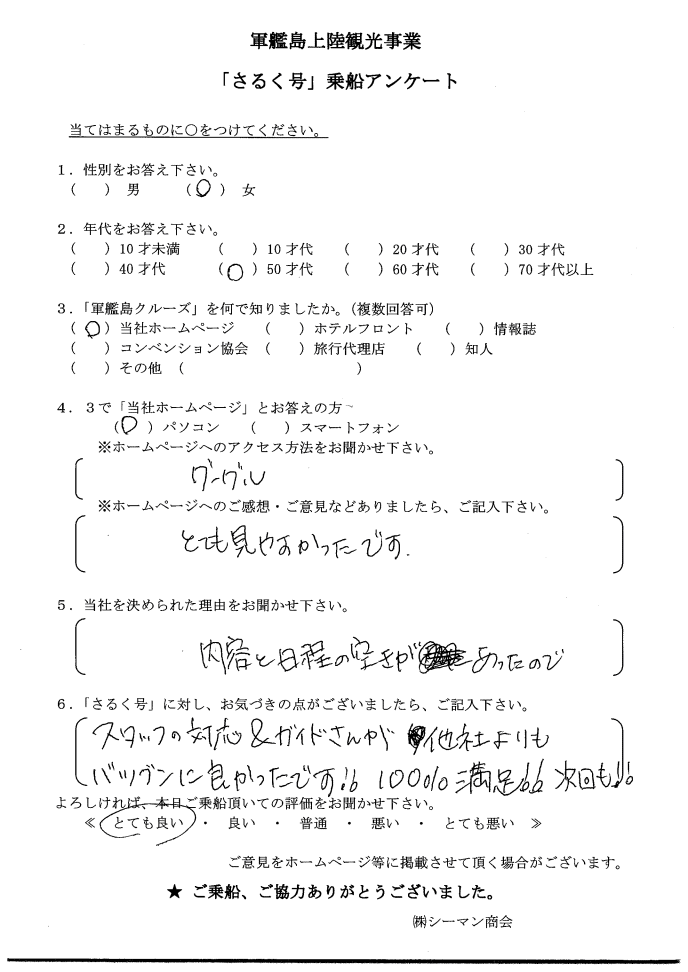 軍艦島上陸観光事業
「さるく号」乗船アンケート
当てはまるものに〇をつけてください。
１．性別をお答え下さい。
（　　）男　　（〇）女
２．年代をお答え下さい。
（　　）10才未満　　（　　）10才代　　（　　）20才代　　（　　）30才代
（　　）40才代　　（〇）50才代　　（　　）60才代　　（　　）70才代以上
３．「軍艦島クルーズ」を何で知りましたか。（複数回答可）
（〇）当社ホームページ　　（　　）ホテルフロント　　（　　）情報誌
（　　）コンベンション協会　（　　）旅行代理店　　（　　）知人
（　　）その他　（　　　　　　　　　　　　）
４．３で「当社ホームページ」とお答えの方~
（〇）パソコン　　（　　）スマートフォン
※ホームページへのアクセス方法をお聞かせ下さい。
グーグル
※ホームページへのご感想・ご意見などありましたら、ご記入下さい。
とても見やすかったです.
５．当社を決められた理由をお聞かせ下さい。
内容と日程の空きが あったので
６．「さるく号」に対し、お気づきの点がございましたら、ご記入下さい。
スタッフの対応&ガイドさんが 他社よりも
バツグンに良かったです!! 100%満足!! 次回も!!
よろしければ、本日ご乗船頂いての評価をお聞かせ下さい。
≪　とても良い　・　良い　・　普通　・　悪い　・　とても悪い　≫
ご意見をホームページ等に掲載させて頂く場合がございます。
★ ご乗船、ご協力ありがとうございました。
㈱シーマン商会